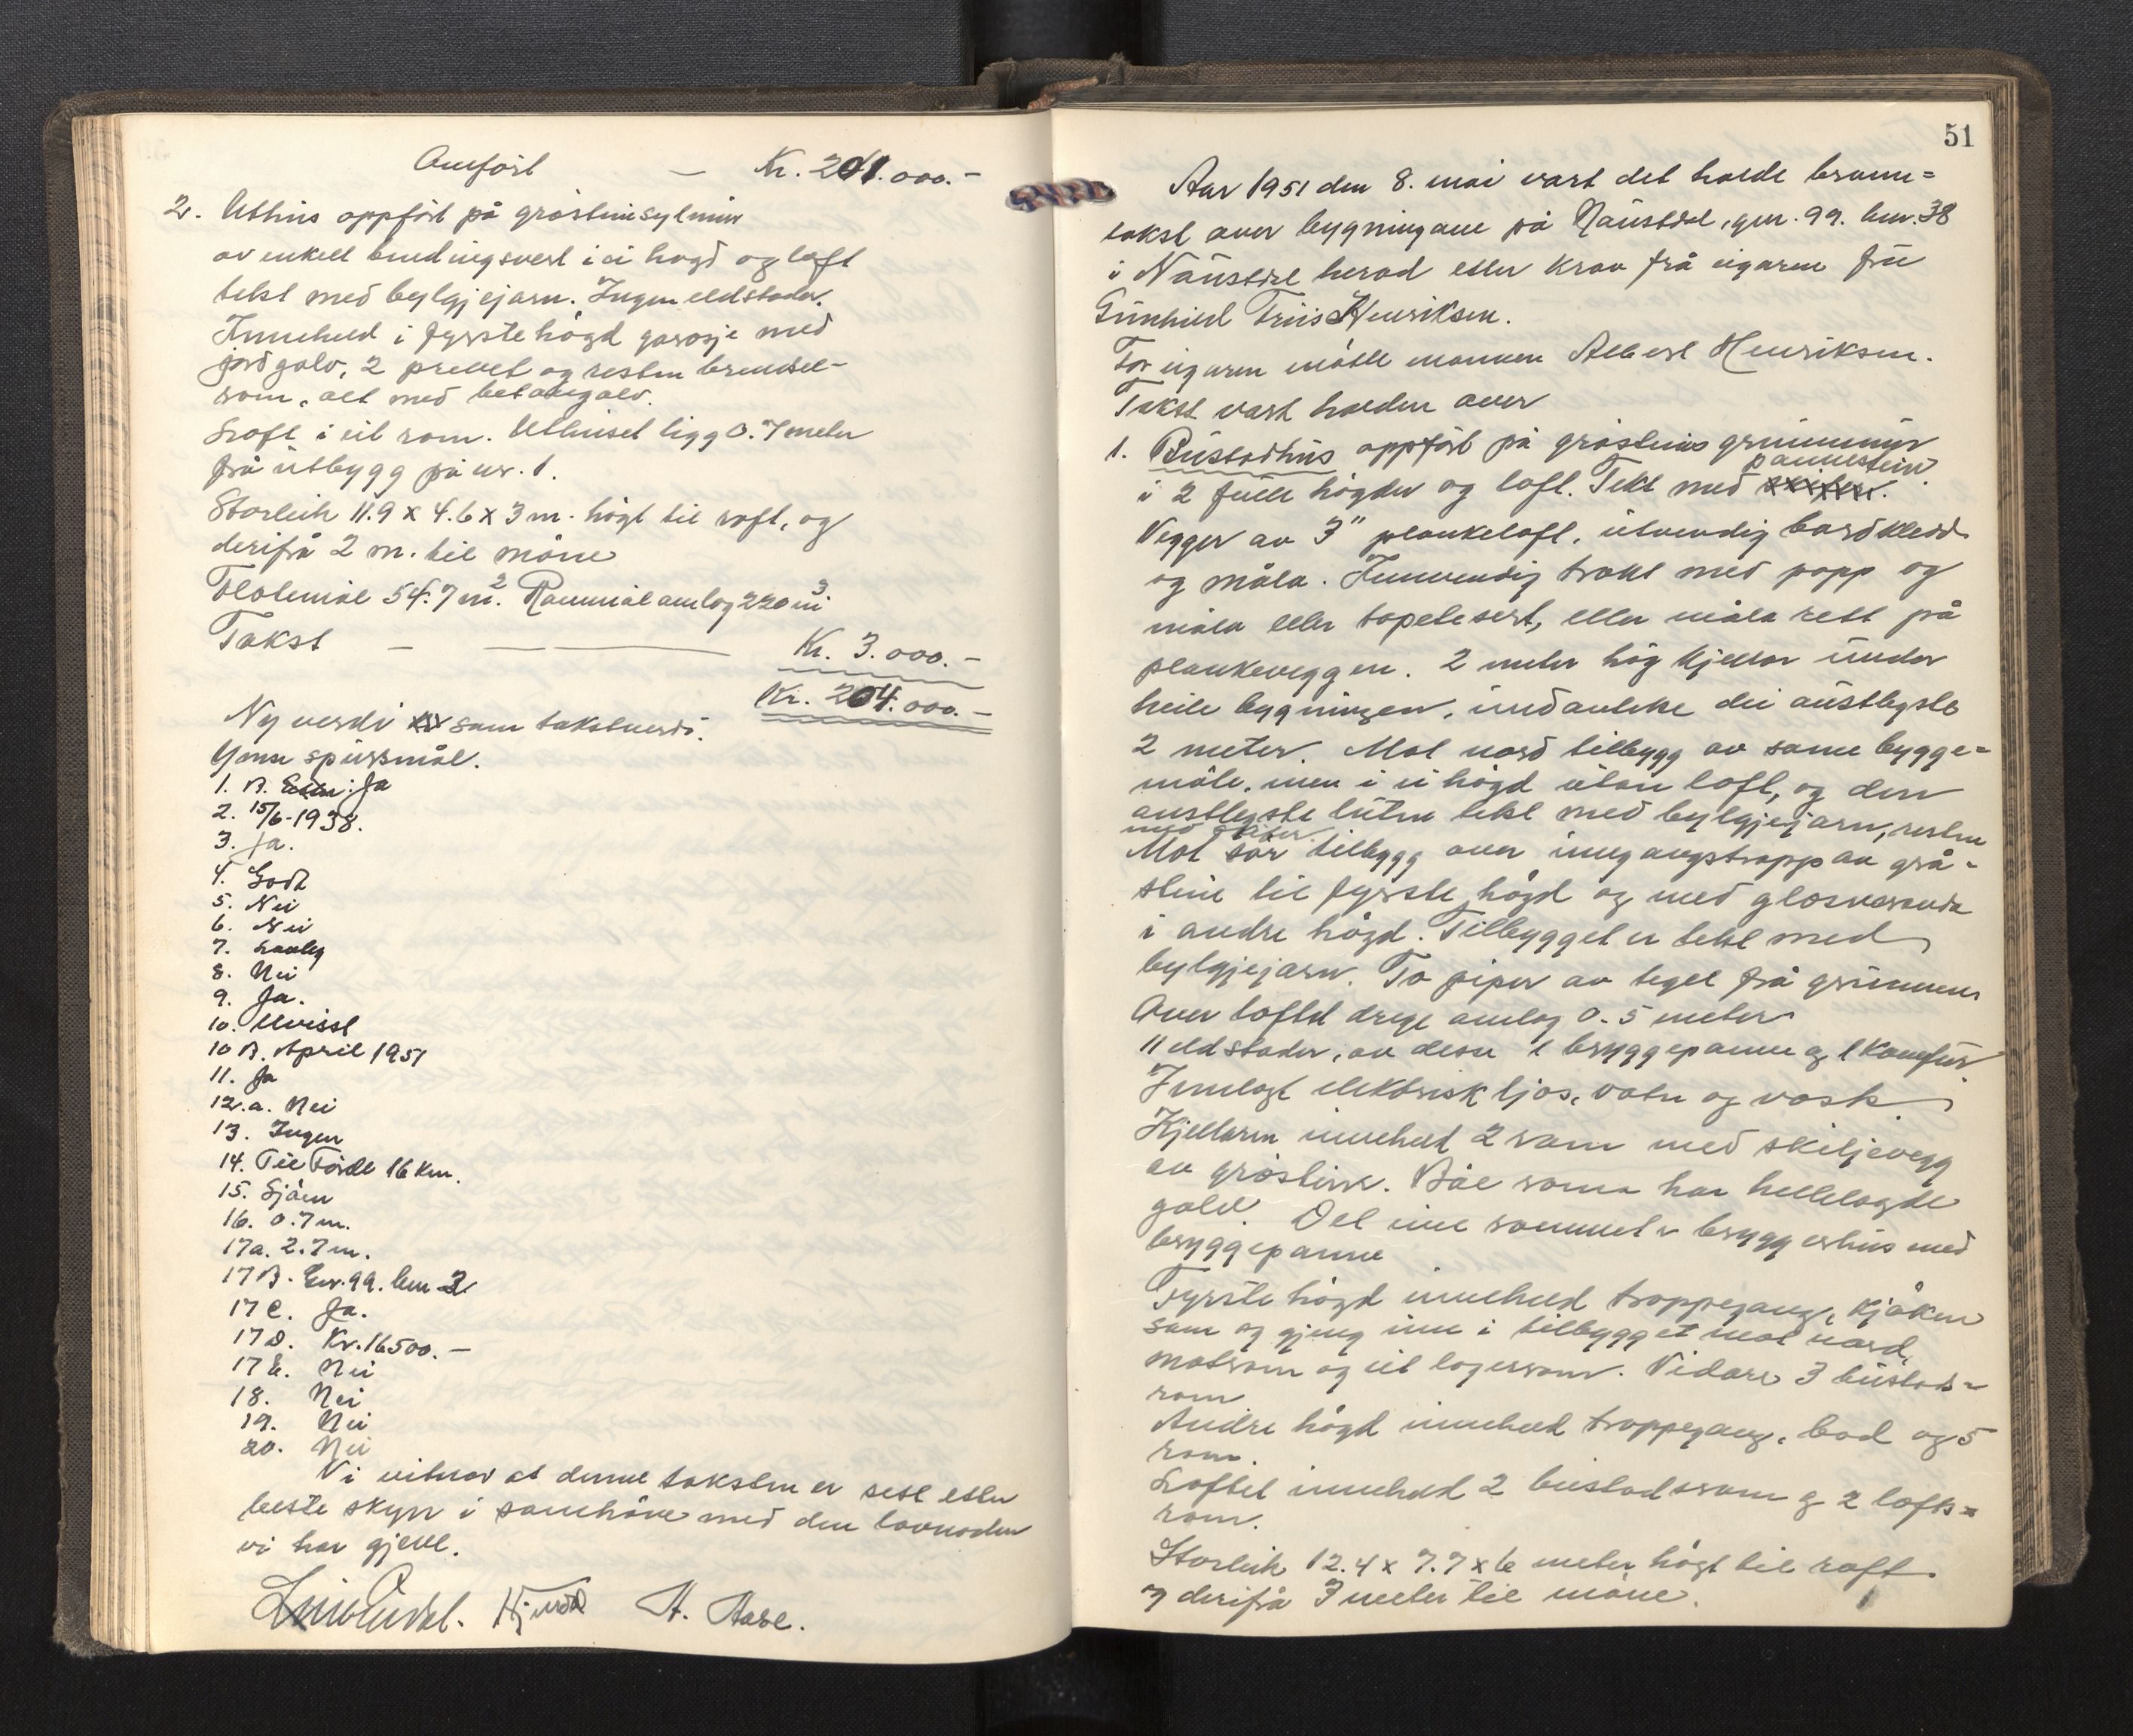 Overført — Kr. 201.000.-
2. Uthus oppført på gråsteinsylmur
av enkelt bindingsverk i ei høgd og loft
tekt med bylgjejarn. Ingen eldstader.
Inneheld i fyrste høgd garasje med
jordgolv, 2 privet og resten brendsel-
rom, alt med betonggolv.
Loft i eit rom. Uthuset ligg 0.7 meter
frå utbygg på nr. 1.
Storleik 11.9 x 4.6 x 3 m. høgt til roft, og
derifrå 2 m. til møne
Flatemål 54.7 m². Rammål omlag 220 m³
Takst — — Kr. 3.000.-
Kr. 204.000.-
Ny verdi som takstverdi.
Ymse spursmål.
1. B. Ja
2. 15/6-1938.
3. Ja.
4. Godt
5. Nei
6. Nei
7. Lovleg
8. Nei
9. Ja.
10. Uvisst
10 B. April 1951
11. Ja
12.a. Nei
13. Ingen
14. Til Førde 16 km.
15. Sjøen
16. 0.7 m.
17a. 2.7 m.
17 B. Gnr. 99. bnr 2
17 C. Ja.
17 D. Kr. 16500.-
17 E. Nei
18. Nei
19. Nei
20. Nei
Vi vitnar at denne taksten er sett etter
beste skyn i samhøve med den lovnaden
vi har gjeve.
H. Aase.
51
Aar 1951 den 8. mai vart det halde brann=
takst over bygningane på Naustdal, gnr. 99. bnr. 38
i Naustdal herad etter krav frå eigaren fru
Gunhild Friis Henriksen.
For eigaren møtte mannen Albert Henriksen.
Takst vart halden over
1. Bustadhus oppført på gråsteins grunnmur
i 2 fulle høgder og loft. Tekt med pannestein.
Vegger av 3" plankelaft, utvendig bordkledd
og måla. Innvendig trekt med papp og
måla eller tapetsert, eller måla rett på
plankeveggen. 2 meter høg kjellar under
heile bygningen, undanteke dei austlegste
2 meter. Mot nord tilbygg av same bygge=
måte, men i ei høgd utan loft, og den
austlegste luten tekt med bylgjejarn, resten
med skifer
Mot sør tilbygg over inngangstrapp av grå-
stein til fyrste høgd og med glasveranda
i andre høgd. Tilbygget er tekt med
bylgjejarn. To piper av tegel frå grunnen
Over loftet drege omlag 0.5 meter
11 eldstader, av desse 1 bryggepanne og 1 komfyr
Innlagt elektrisk ljos, vatn og vask.
Kjellaren inneheld 2 rom med skiljevegg
av gråstein. Båe roma har hellelagde
golv. Det eine rommet er bryggerhus med
bryggepanne
Fyrste høgd inneheld trappegang, kjøken
som og gjeng inn i tilbygget mot nord,
matrom og eit lagerrom. Vidare 3 bustad=
rom
Andre høgd inneheld trappegang, bad og 5
rom.
Loftet inneheld 2 bustadsrom og 2 lofts=
rom.
Storleik 12.4 x 7.7 x 6 meter høgt til roft
og derifrå 3 meter til møne.